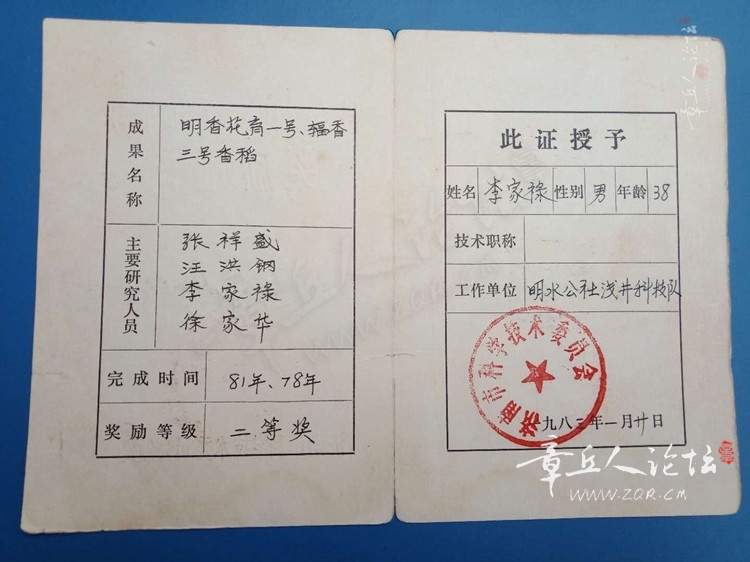 成果名称
明香花育一号、辐香
三号香稻
主要研究人员
张祥盛
汪洪钢
李家禄
徐家华
完成时间 81年、78年
奖励等级 二等奖
此证授予
姓名 李家禄 性别 男 年龄 38
技术职称
工作单位 明水公社浅井科技队
济南市科学技术委员会
一九八三年一月廿日
章丘人论坛
www.ZQR.CM
章丘人论坛